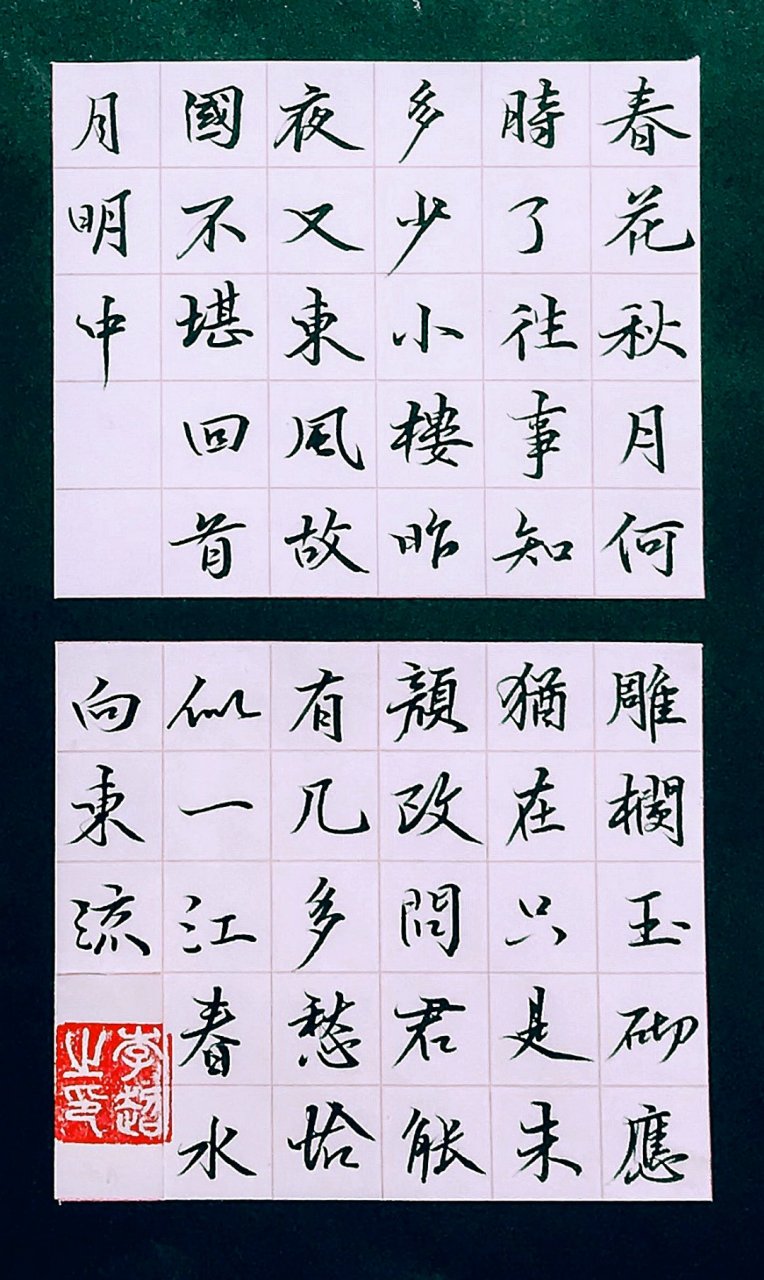 春花秋月何
時了往事知
多少小樓昨
夜又東風故
國不堪回首
月明中
雕欄玉砌應
猶在只是朱
顏改問君能
有几多愁恰
似一江春水
向東流
李超
之印